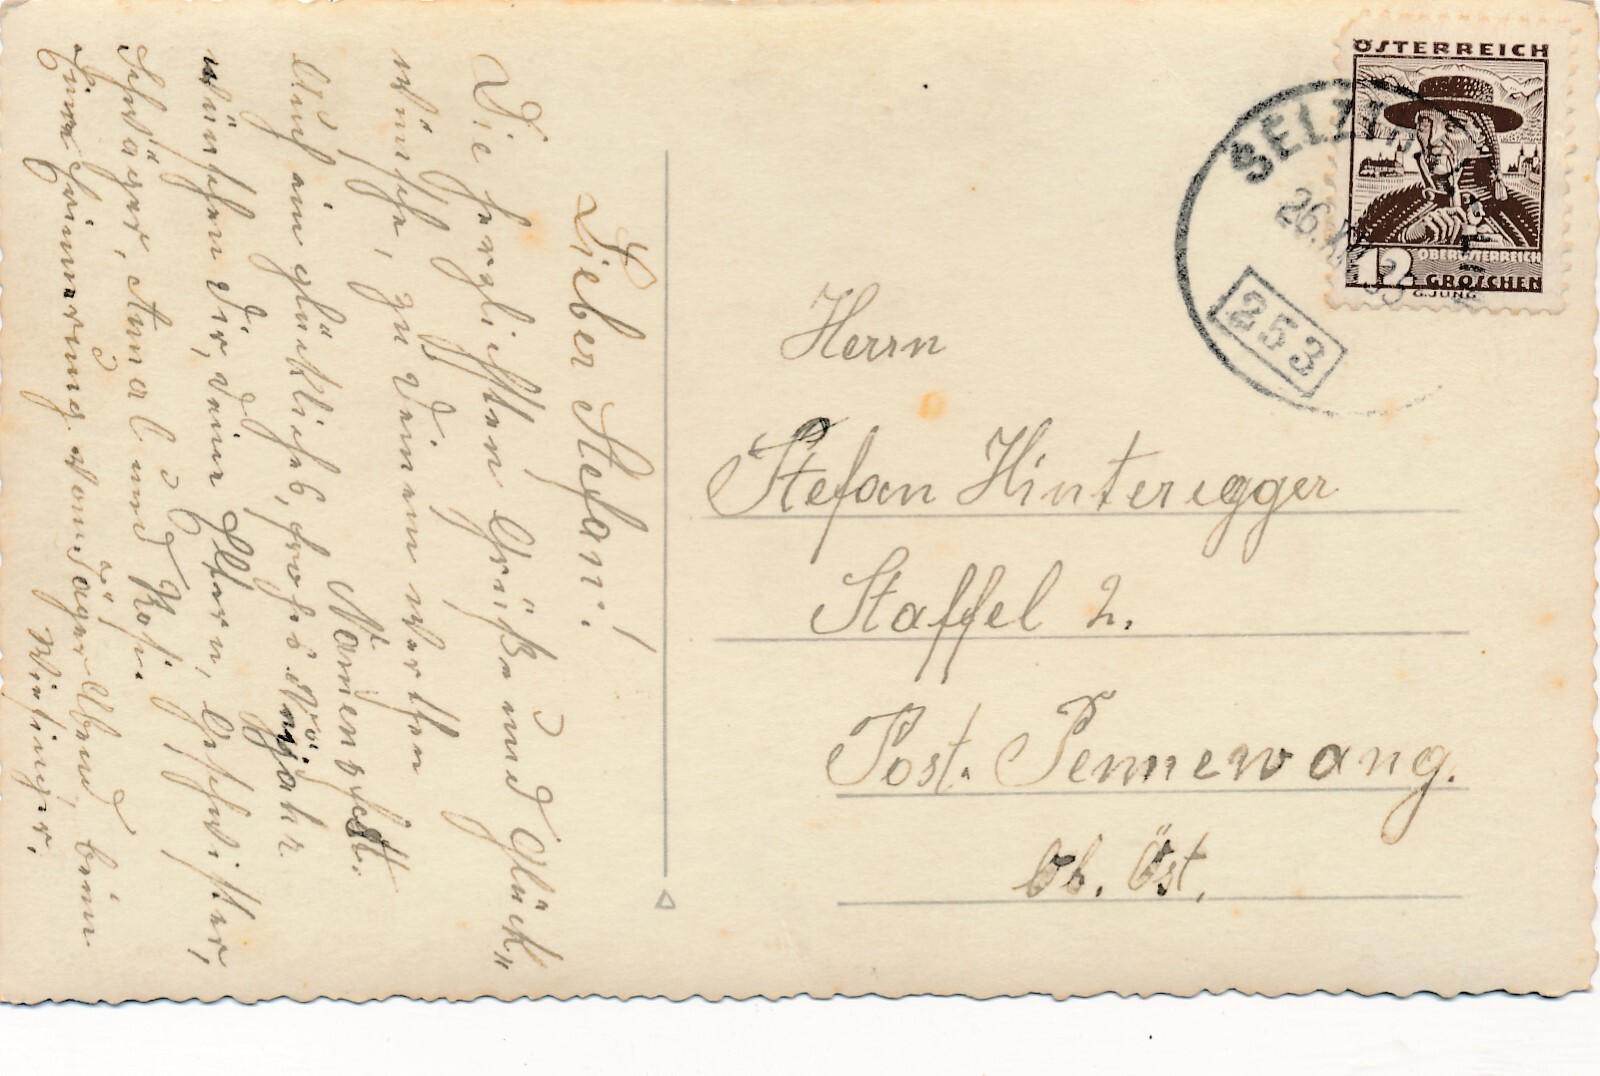 Lieber Stefan!
Die herzlichsten Grüße und Glück-
wünsche, zu Deinem werten
Namensfest.
Auch ein glückliches, frohes Neujahr
wünschen Dir, deine Eltern, Geschwister,
Schwager, Annal und Rosi.
Zur Erinnerung vom Jäger Abend, beim
Wiesinger.
ÖSTERREICH
OBERÖSTERREICH
12 GROSCHEN
G. JUNG
SELZTH
26. XII. 35
253
Herrn
Stefan Hinteregger
Staffel 2.
Post. Pennewang.
Ob. Öst.